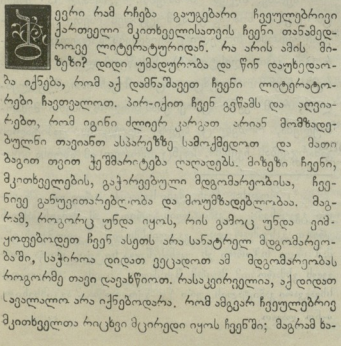 ევრი რამ რჩება გაუგებარი ჩვეულებრივი
ქართველი მკითხველისათვის ჩვენი თანამედ-
როვე ლიტერატურიდან. რა არის ამის მი-
ზეზი? დიდი უმადურობა და წინ დაუხედაო-
ბა იქნება, რომ აქ დამნაშავეთ ჩვენი ლიტერატო-
რები ჩავთვალოთ. პირ-იქით ჩვენ გვწამს და აღვია-
რებთ, რომ იგინი ძლიერ კარგათ არიან მომზადე-
ბულნი თავიანთ ასპარეზზე სამოქმედოთ და მათი
ბაგით თვით ჭეშმარიტება ღაღადებს. მიზეზი ჩვენი,
მკითხველების, გაჭირვებული მდგომარეობისა, ჩვე-
ნივე განუვითარებლობა და მოუმზადებლობაა. მაგ-
რამ, როგორც უნდა იყოს, რის გამოც უნდა ვიმ-
ყოფებოდეთ ჩვენ ასეთს არა სანატრელ მდგომარეო-
ბაში, საჭიროა დიდათ ვეცადოთ ამ მდგომარეობას
როგორმე თავი დავახწიოთ. რასაკვირველია, აქ დიდათ
სავალალო არა იქნებოდარა, რომ ამგვარ ჩვეულებრივ
მკითხველთა რიცხვი მცირედი იყოს ჩვენში; მაგრამ სა-